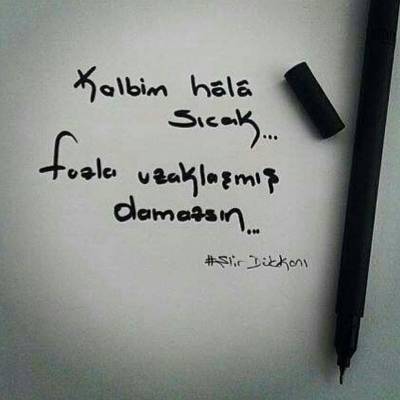 Kalbim hâlâ
sıcak...
fazla uzaklaşmış
olamazsın...
#Şiir Dükkanı